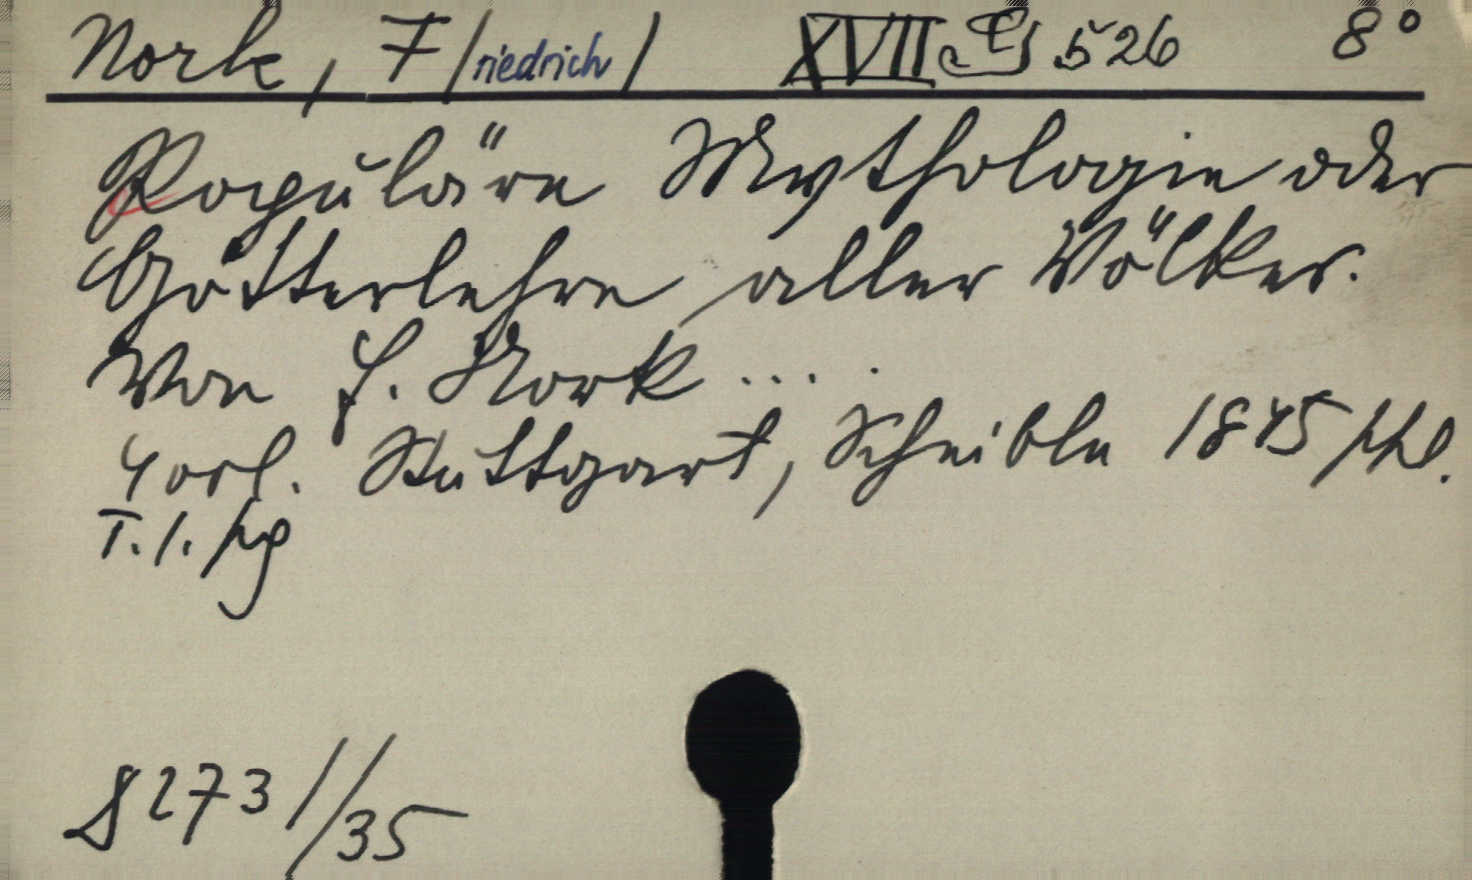 Nork, F/riedrich/ XVII 526 8°
Populäre Mythologie oder
Götterlehre aller Völker.
Von F. Nork ... .
Stuttgart, Scheible 1845
T. 1.
8273//35